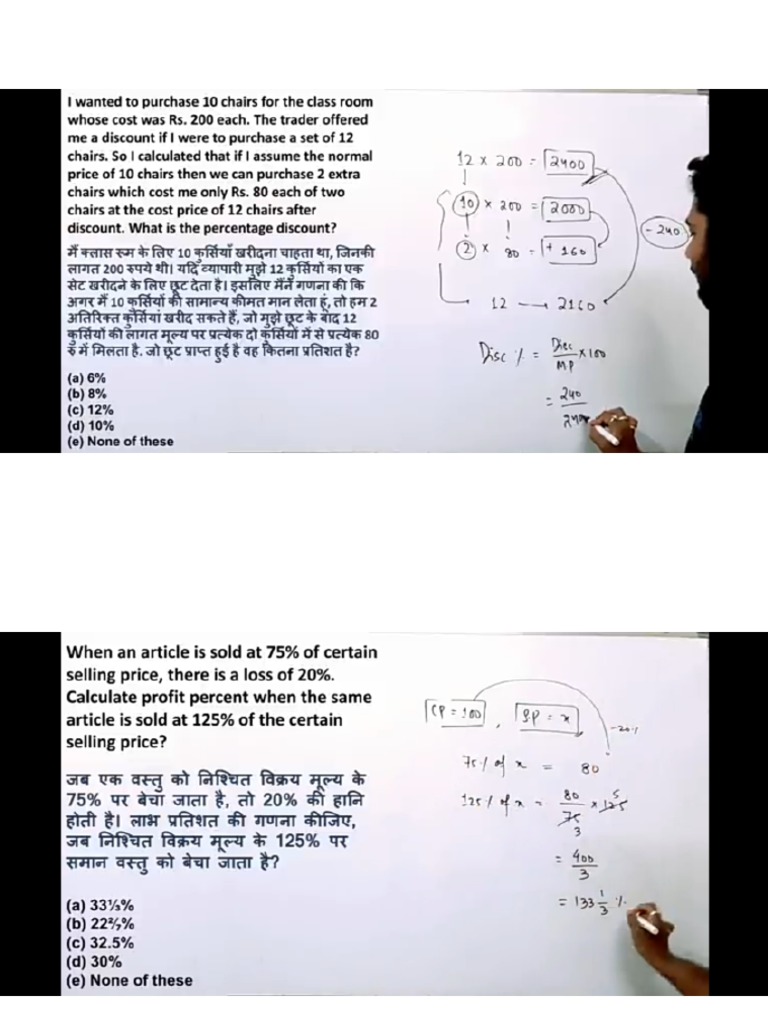 I wanted to purchase 10 chairs for the class room
whose cost was Rs. 200 each. The trader offered
me a discount if I were to purchase a set of 12
chairs. So I calculated that if I assume the normal
price of 10 chairs then we can purchase 2 extra
chairs which cost me only Rs. 80 each of two
chairs at the cost price of 12 chairs after
discount. What is the percentage discount?
मैं क्लास रूम के लिए 10 कुर्सियाँ खरीदना चाहता था, जिनकी
लागत 200 रुपये थी। यदि व्यापारी मुझे 12 कुर्सियों का एक
सेट खरीदने के लिए छूट देता है। इसलिए मैंने गणना की कि
अगर मैं 10 कुर्सियों की सामान्य कीमत मान लेता हूं, तो हम 2
अतिरिक्त कुर्सियां खरीद सकते हैं, जो मुझे छूट के बाद 12
कुर्सियों की लागत मूल्य पर प्रत्येक दो कुर्सियों में से प्रत्येक 80
रु में मिलता है. जो छूट प्राप्त हुई है वह कितना प्रतिशत है?
(a) 6%
(b) 8%
(c) 12%
(d) 10%
(e) None of these
12 × 200 = 2400
10 × 200 = 2000
2 × 80 = + 160
- 240
12 → 2160
Disc % = Disc/MP × 100
= 240
When an article is sold at 75% of certain
selling price, there is a loss of 20%.
Calculate profit percent when the same
article is sold at 125% of the certain
selling price?
जब एक वस्तु को निश्चित विक्रय मूल्य के
75% पर बेचा जाता है, तो 20% की हानि
होती है। लाभ प्रतिशत की गणना कीजिए,
जब निश्चित विक्रय मूल्य के 125% पर
समान वस्तु को बेचा जाता है?
(a) 33⅓%
(b) 22²⁄₇%
(c) 32.5%
(d) 30%
(e) None of these
CP = 100 , S.P = x
-20%
75% of x = 80
125% of x = 80/75 × 125
3 5
= 400/3
= 133 1/3 %